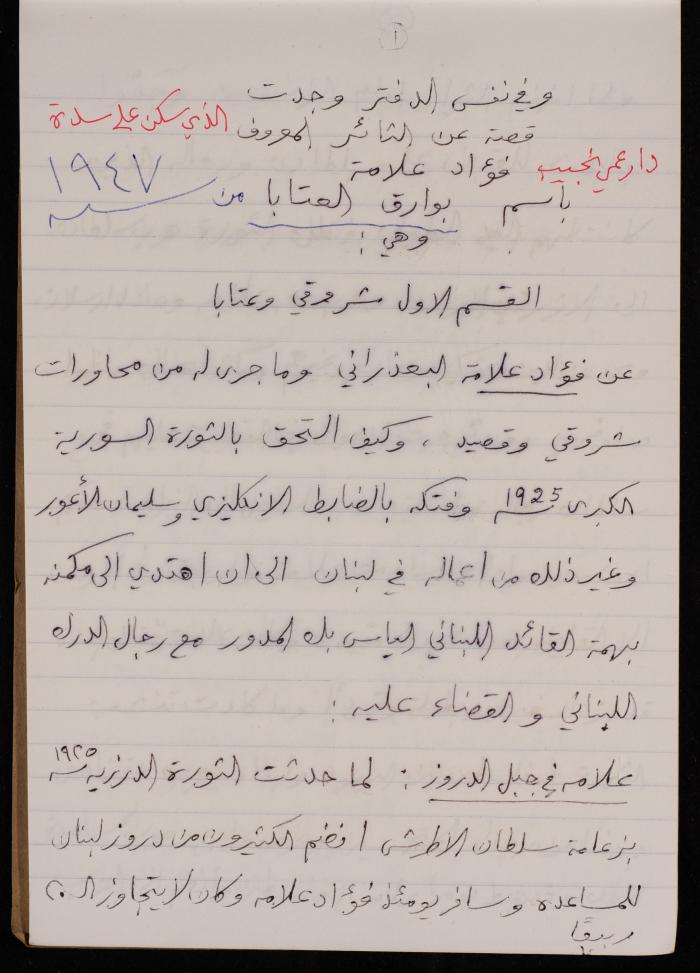 ١
وفي نفس الدفتر وجدت
قصة عن الثائر المعروف الذي سكن على سدة
فؤاد علامة دار عمي نجيب
باسم بوارق العتابا من سنة ١٩٤٧
وهي :
القسم الاول شروقي وعتابا
عن فؤاد علامة البعذراني وما جرى له من محاورات
شروقي وقصيد ، وكيف التحق بالثورة السورية
الكبرى سنة 1925 وفتكه بالضابط الانكليزي وسليمان الأعور
وغير ذلك من اعماله في لبنان الى ان اهتدي الى مكمنه
بهمة القائد اللبناني الياس بك المدور مع رجال الدرك
اللبناني و القضاء عليه :
علامه في جبل الدروز : لما حدثت الثورة الدرزيه سنة ١٩٢٥
بزعامة سلطان الاطرش انضم الكثيرون من دروز لبنان
للمساعده وسافر يومئذ فؤاد علامه وكان لا يتجاوز الـ ٢٠
ربيعًا